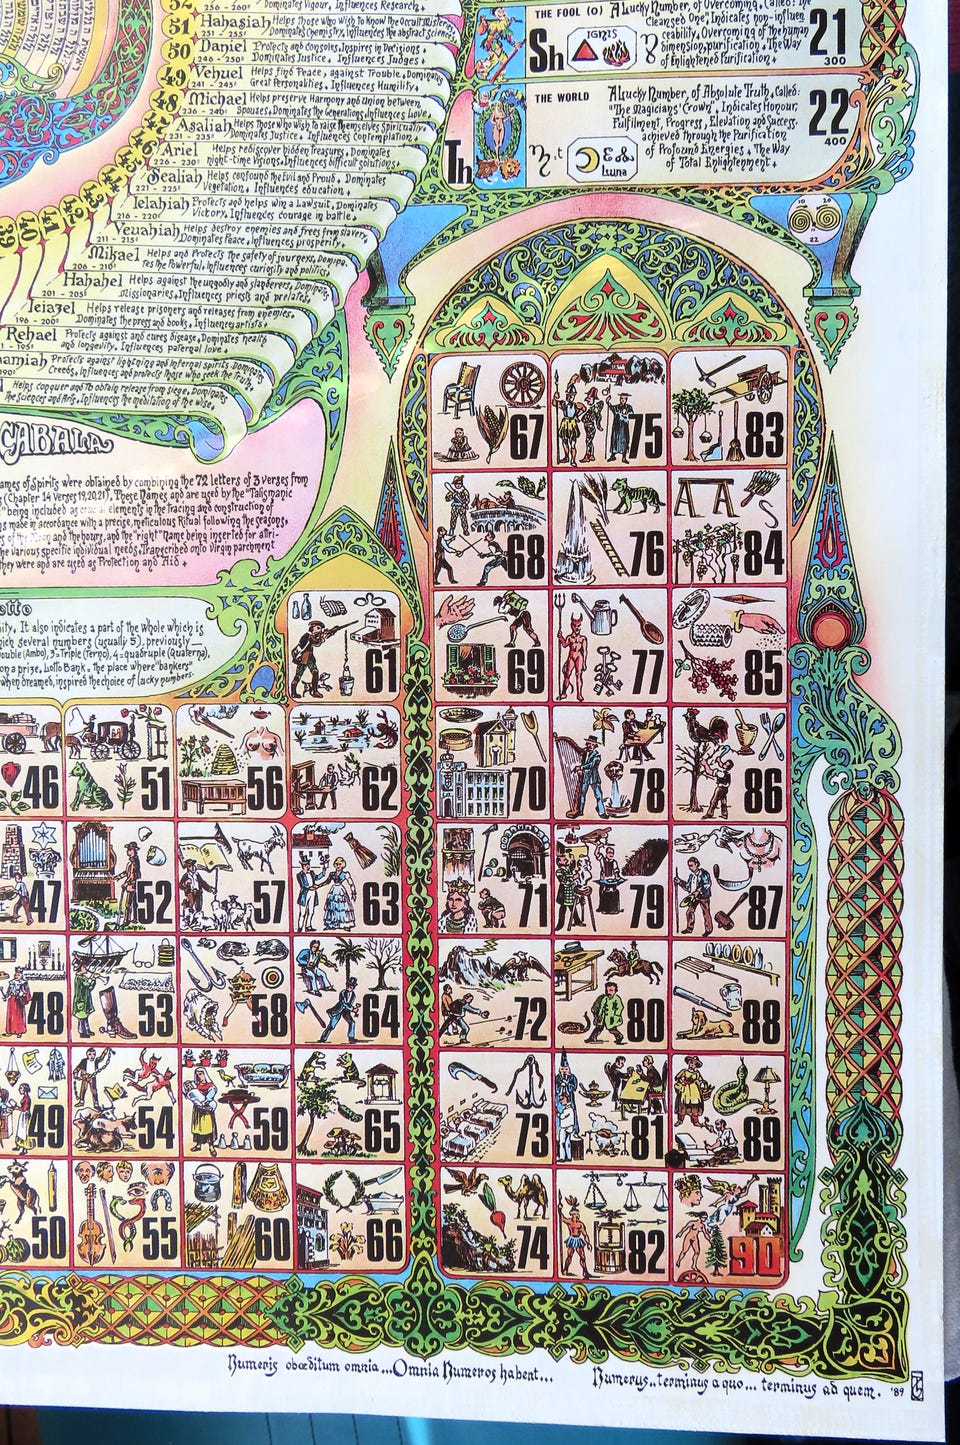 52
256 - 260° Dominates Vigour, Influences Research.
51 Hahasiah Helps Those who Wish to Know the Occult Mysteries
251 - 255° Dominates Chemistry, Influences the abstract Sciences
50 Daniel Protects and consoles, Inspires in Decisions
246 - 250° Dominates Justice. Influences Judges.
49 Vehuel Helps find Peace, against Trouble, Dominates
241 - 245° Great Personalities. Influences Humility.
48 Michael Helps preserve Harmony and Union between
236 - 240° Spouses, Dominates the Generations, Influences Love.
Asaliah Helps Those who Wish to raise themselves Spiritually
231 - 235° Dominates Justice. Influences Contemplation.
Ariel Helps rediscover hidden Treasures, Dominates
226 - 230° night-time Visions, Influences difficult solutions.
Sealiah Helps confound the Evil and Proud. Dominates
221 - 225° Vegetation. Influences education.
Ielahiah Protects and helps win a Lawsuit, Dominates
216 - 220° Victory, Influences courage in battle.
Veuahiah Helps destroy enemies and frees from slavery
211 - 215° Dominates Peace, Influences prosperity.
Mikael Helps and Protects the safety of journeys, Domina-
206 - 210° tes the Powerful, Influences curiosity and politics
Hahahel Helps against the ungodly and slanderers, Dominates
201 - 205° Missionaries, Influences priests and prelates,
Ieiazel Helps release prisoners and releases from enemies.
196 - 200° Dominates the press and books, Influences artists.
Rehael Protects against and cures disease, Dominates health
and longevity, Influences paternal love.
amiah Protects against lightning and infernal spirits Dominates
Creeds, Influences and protects Those who seek the Truth,
Helps conquer and to obtain release from siege, Dominates
the sciences and Arts, Influences the meditation of the wise.
THE FOOL (0) A Lucky Number, of Overcoming, Called: "The
Cleansed One", Indicates non-influen
ceability, Overcoming of the human
dimension, purification. The Way
of Enlightened Purification.
Sh IGNIS
21
300
THE WORLD A Lucky Number, of Absolute Truth, Called:
"The Magicians' Crown", Indicates Honour,
Fulfilment, Progress, Elevation and Success.
achieved through the Purification
of Profound Energies. The Way
of Total Enlightenment.
Th Luna
22
400
10 20
22
CABALA
ames of Spirits were obtained by combining the 72 letters of 3 verses from
(Chapter 14 Verses 19,20,21). These Names and are used by the "Talismanic
" being included as crucial elements in the tracing and construction of
s made in accordance with a precise, meticulous Ritual following the seasons,
s of the Moon and the hours, and the "right" Name being inserted for attri-
he various specific individual needs, Transcribed onto Virgin parchment
they were and are used as Protection and Aid.
otto
ity. It also indicates a part of the Whole which is
hich several numbers (usually 5), previously
ouble (Ambo), 3=Triple (Terno), 4=quadruple (Quaterna),
on a prize, Lotto Bank = the place where "bankers"
when dreamed, inspired the choice of lucky numbers.
67 75 83
68 76 84
61 69 77 85
46 51 56 62 70 78 86
47 52 57 63 71 79 87
48 53 58 64 72 80 88
49 54 59 65 73 81 89
50 55 60 66 74 82 90
Numeris obœditum omnia... Omnia Numeros habent...
Numerus.. terminus a quo... terminus ad quem. '89